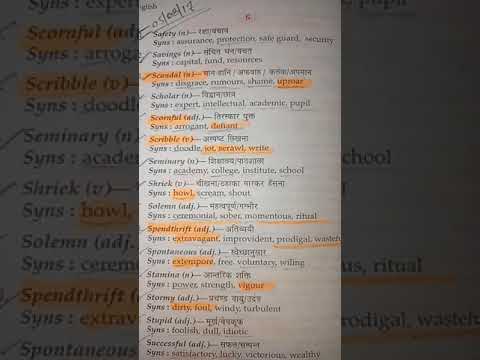 English
05/09/17
S
Safety (n)— रक्षा/बचाव
Syns : assurance, protection, safe guard, security
Savings (n)— संचित धन/बचत
Syns : capital, fund, resources
Scandal (n)— मान हानि / अफवाह / कलंक/अपमान
Syns : disgrace, rumours, shame, uproar
Scholar (n)— विद्वान/छात्र
Syns : expert, intellectual, academic, pupil
Scornful (adj.)— तिरस्कार युक्त
Syns : arrogant, defiant
Scribble (v)— अस्पष्ट लिखना
Syns : doodle, jot, scrawl, write
Seminary (n)— शिक्षालय/पाठशाला
Syns : academy, college, institute, school
Shriek (v)— चीखना/ठहाका मारकर हँसना
Syns : howl, scream, shout
Solemn (adj.)— महत्वपूर्ण/गम्भीर
Syns : ceremonial, sober, momentous, ritual
Spendthrift (adj.)— अतिव्ययी
Syns : extravagant, improvident, prodigal, wasteful
Spontaneous (adj.)— स्वेच्छानुसार
Syns : extempore, free, voluntary, wiling
Stamina (n)— आन्तरिक शक्ति
Syns : power, strength, vigour
Stormy (adj.)— प्रचण्ड वायु/उदंड
Syns : dirty, foul, windy, turbulent
Stupid (adj.)— मूर्ख/बेवकूफ
Syns : foolish, dull, idiotic
Successful (adj.)— सफल/सम्पन्न
Syns : satisfactory, lucky, victorious, wealthy